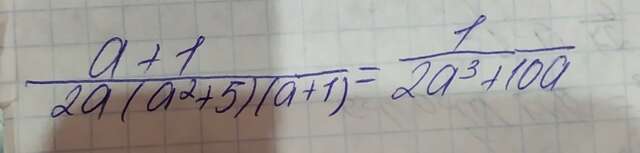 a+1 / 2a(a²+5)(a+1) = 1 / 2a³+10a